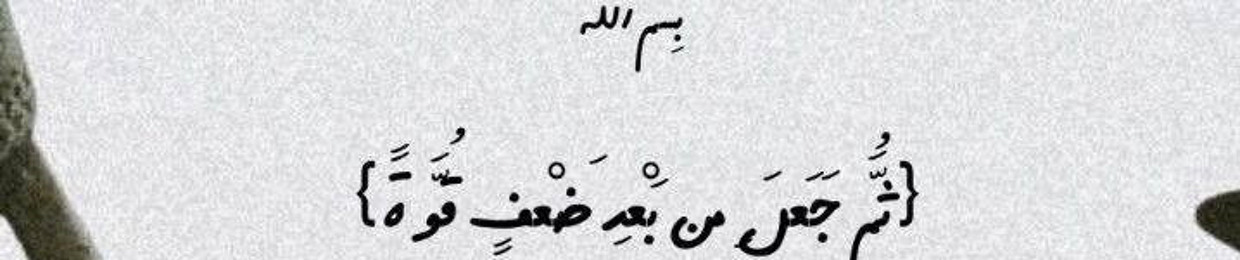 بِسم الله
{ثُمَّ جَعَلَ من بَعْدِ ضَعْفٍ قُوَّةً}